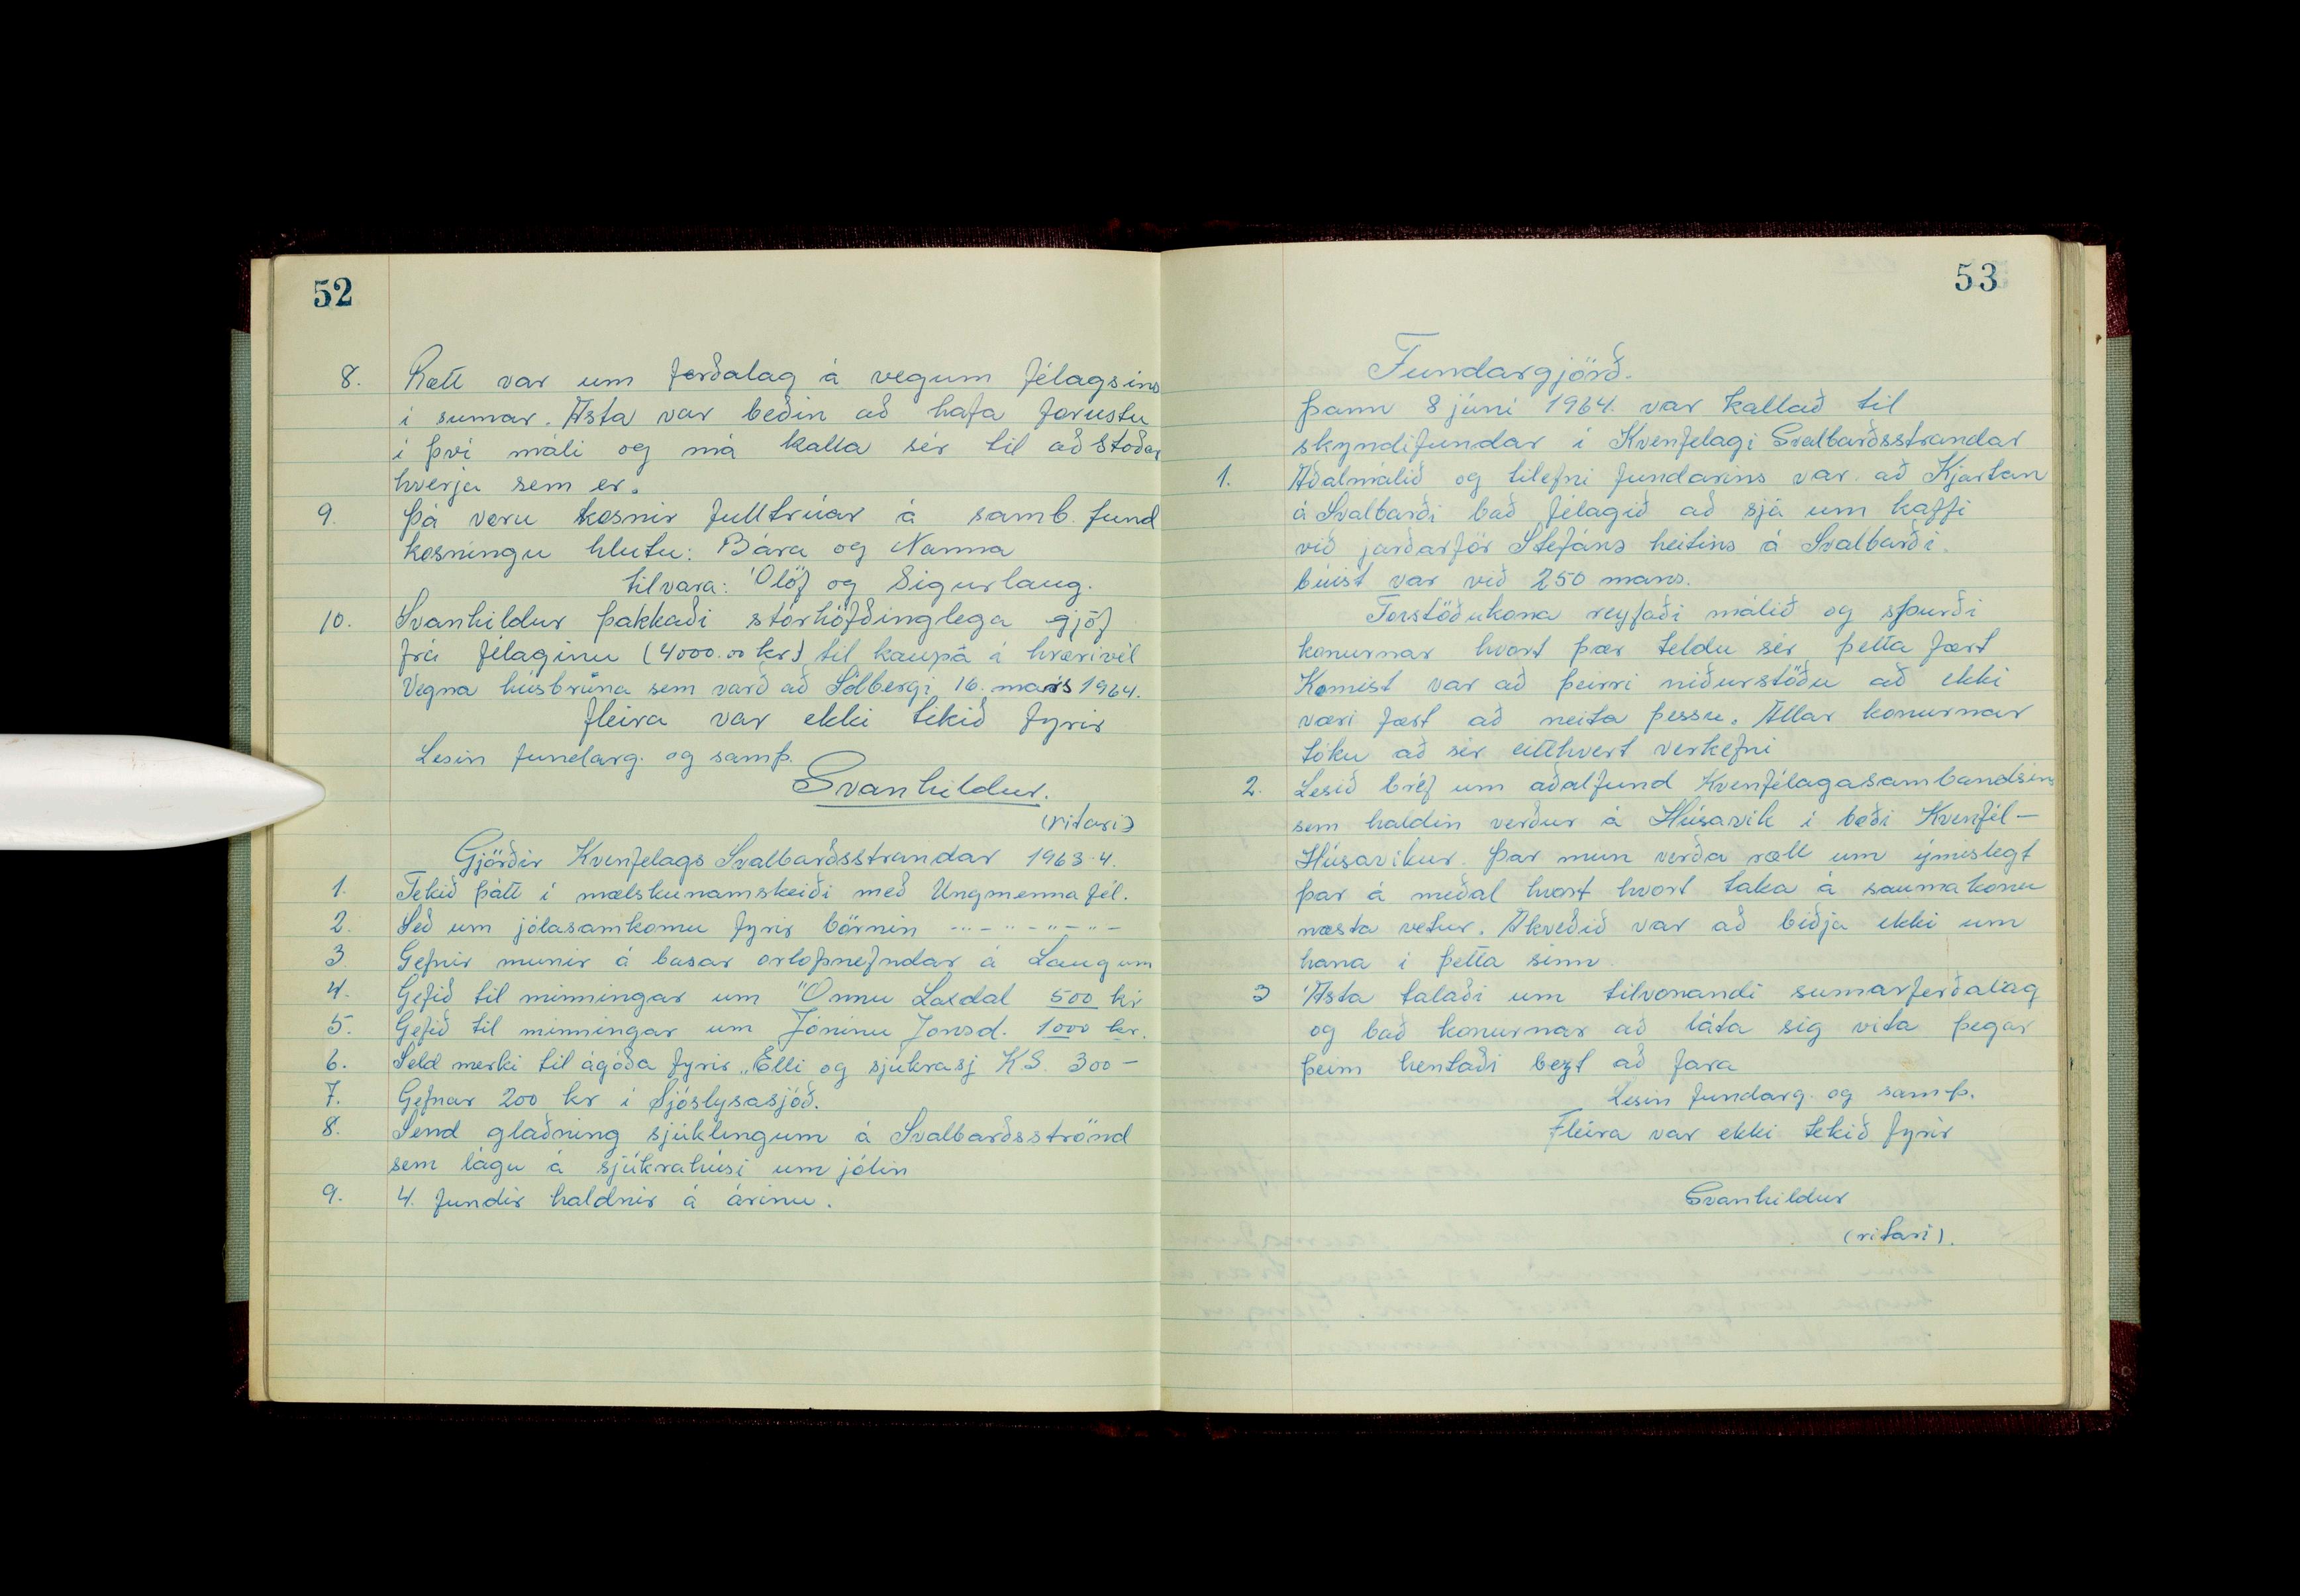 52
8. Rætt var um ferðalag á vegum félagsins
í sumar. Ásta var beðin að hafa forustu
í því máli og má kalla sér til aðstoðar
hverja sem er.
9. Þá voru kosnir fulltrúar á samb. fund
kosningu hlutu: Bára og Nanna
til vara: Ólöf og Sigurlaug.
10. Svanhildur þakkaði stórhöfðinglega gjöf
frá félaginu (4000.00 kr) til kaupa á hrærivél
Vegna húsbruna sem varð að Sólbergi 16. mars 1964.
fleira var ekki tekið fyrir
Lesin fundarg. og samþ.
Svanhildur.
(ritari)
Gjörðir Kvenfelags Svalbarðsstrandar 1963-4.
1. Tekið þátt í mælskunamskeiði með Ungmennafél.
2. Séð um jólasamkomu fyrir börnin -"-"-"-"-
3 Gefnir munir á basar orlofsnefndar á Laugum
4. Gefið til minningar um Önnu Laxdal 500 kr
5. Gefið til minningar um Jóninu Jónsd. 1000 kr.
6. Seld merki til ágóða fyrir „Elli og sjúkrasj K.S. 300 —
7. Gefnar 200 kr í Sjóslysasjóð.
8. Send glaðning sjúklingum á Svalbarðsströnd
sem lágu á sjúkrahúsi um jólin
9. 4. fundir haldnir á árinu.
53
Fundargjörð.
Þann 8 júní 1964. var kallað til
skyndifundar í Kvenfelagi Svalbarðsstrandar
1. Aðalmálið og tilefni fundarins var að Kjartan
á Svalbarði bað félagið að sjá um kaffi
við jarðarför Stefáns heitins á Svalbarði.
búist var við 250 mans.
Forstöðukona reyfaði málið og spurði
konurnar hvort þær teldu sér þetta fært
Komist var að þeirri niðurstöðu að ekki
væri fært að neita þessu. Allar konurnar
tóku að sér eitthvert verkefni
2. Lesið bréf um aðalfund Kvenfélagasambandsins
sem haldin verður á Húsavik í boði Kvenfél—
Húsavikur. Þar mun verða rætt um ýmislegt
þar á meðal hvort hvort taka á saumakonu
næsta vetur. Akveðið var að biðja ekki um
hana í þetta sinn
3 Ásta talaði um tilvonandi sumarferðalag
og bað konurnar að láta sig vita þegar
þeim hentaði bezt að fara
Lesin fundarg. og samþ.
Fleira var ekki tekið fyrir
Svanhildur
(ritari).